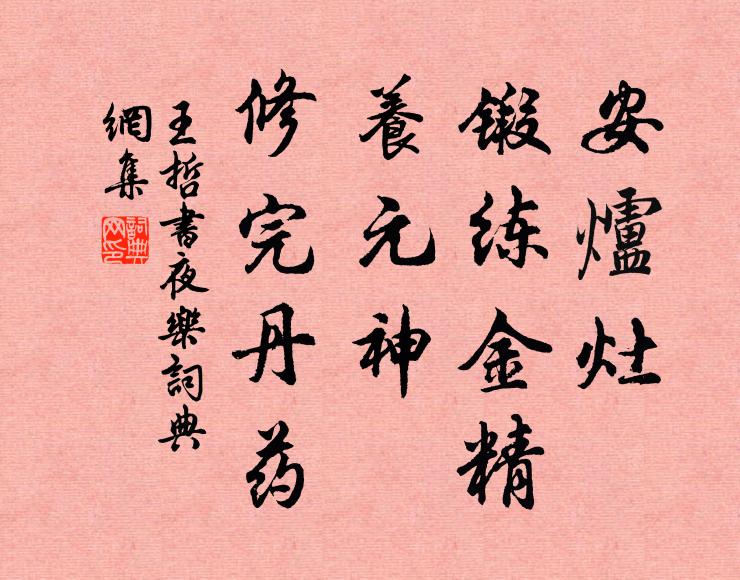 安爐灶
鍛练金精
養元神
修完丹药
王哲書夜樂詞典
網集
詞典
网印